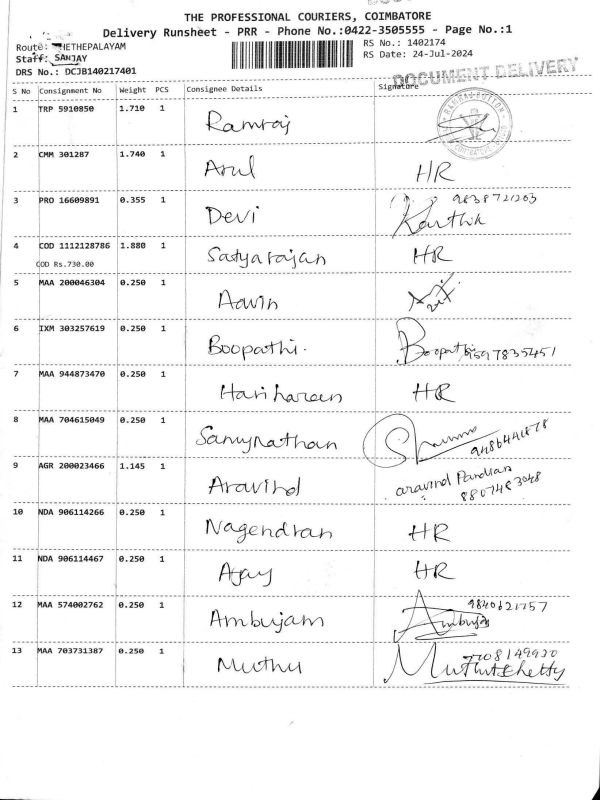 THE PROFESSIONAL COURIERS, COIMBATORE
Delivery Runsheet - PRR - Phone No.:0422-3505555 - Page No.:1
Route: THETHEPALAYAM
RS No.: 1402174
Staff: SANJAY
RS Date: 24-Jul-2024
DRS No.: DCJB140217401
DOCUMENT DELIVERY
S No Consignment No Weight PCS Consignee Details Signature
1 TRP 5910850 1.710 1 Ramraj
2 CMM 301287 1.740 1 Arul HR
3 PRO 16609891 0.355 1 Devi Karthik 9838721203
4 COD 1112128786 1.880 1 Satyarajan HR
COD Rs.730.00
5 MAA 200046304 0.250 1 Aavin
6 IXM 303257619 0.250 1 Boopathi. Boopathi 9597835451
7 MAA 944873470 0.250 1 Hariharan HR
8 MAA 704615049 0.250 1 Samynathan 9486441878
9 AGR 200023466 1.145 1 Aravind aravind Pandian
8807483048
10 NDA 906114266 0.250 1 Nagendran HR
11 NDA 906114467 0.250 1 Ajay HR
12 MAA 574002762 0.250 1 Ambujam Ambujam 9840621757
13 MAA 703731387 0.250 1 Muthu Muthu Shetty 7708149920